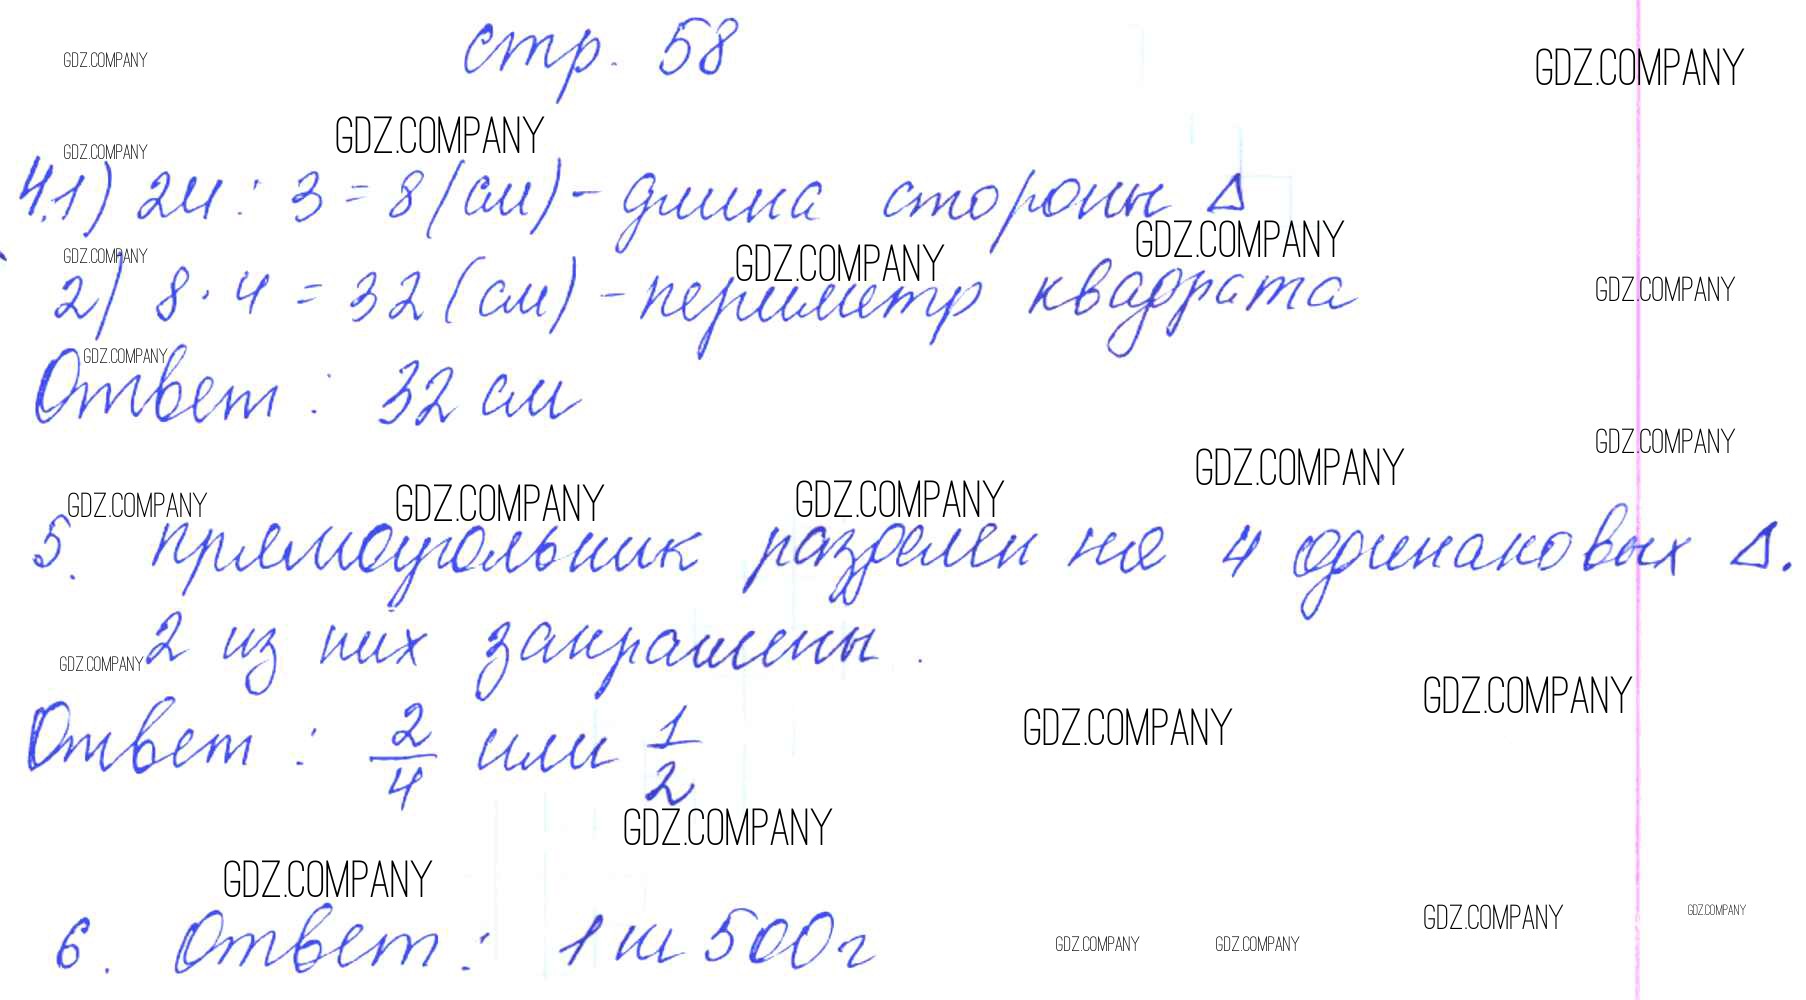 стр. 58
GDZ.COMPANY
GDZ.COMPANY
GDZ.COMPANY
GDZ.COMPANY
4.1) 24 : 3 = 8 (см) - длина стороны Δ
GDZ.COMPANY
GDZ.COMPANY
GDZ.COMPANY
GDZ.COMPANY
2) 8 · 4 = 32 (см) - периметр квадрата
GDZ.COMPANY
Ответ : 32 см
GDZ.COMPANY
GDZ.COMPANY
GDZ.COMPANY
GDZ.COMPANY
GDZ.COMPANY
GDZ.COMPANY
5. прямоугольник разделен на 4 одинаковых Δ.
2 из них закрашены.
GDZ.COMPANY
Ответ : 2/4 или 1/2
GDZ.COMPANY
GDZ.COMPANY
GDZ.COMPANY
GDZ.COMPANY
6. Ответ : 1 кг 500 г
GDZ.COMPANY
GDZ.COMPANY
GDZ.COMPANY
GDZ.COMPANY